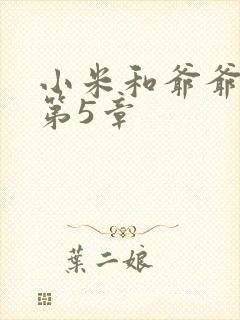 小米和爷爷
第5章
葉二娘